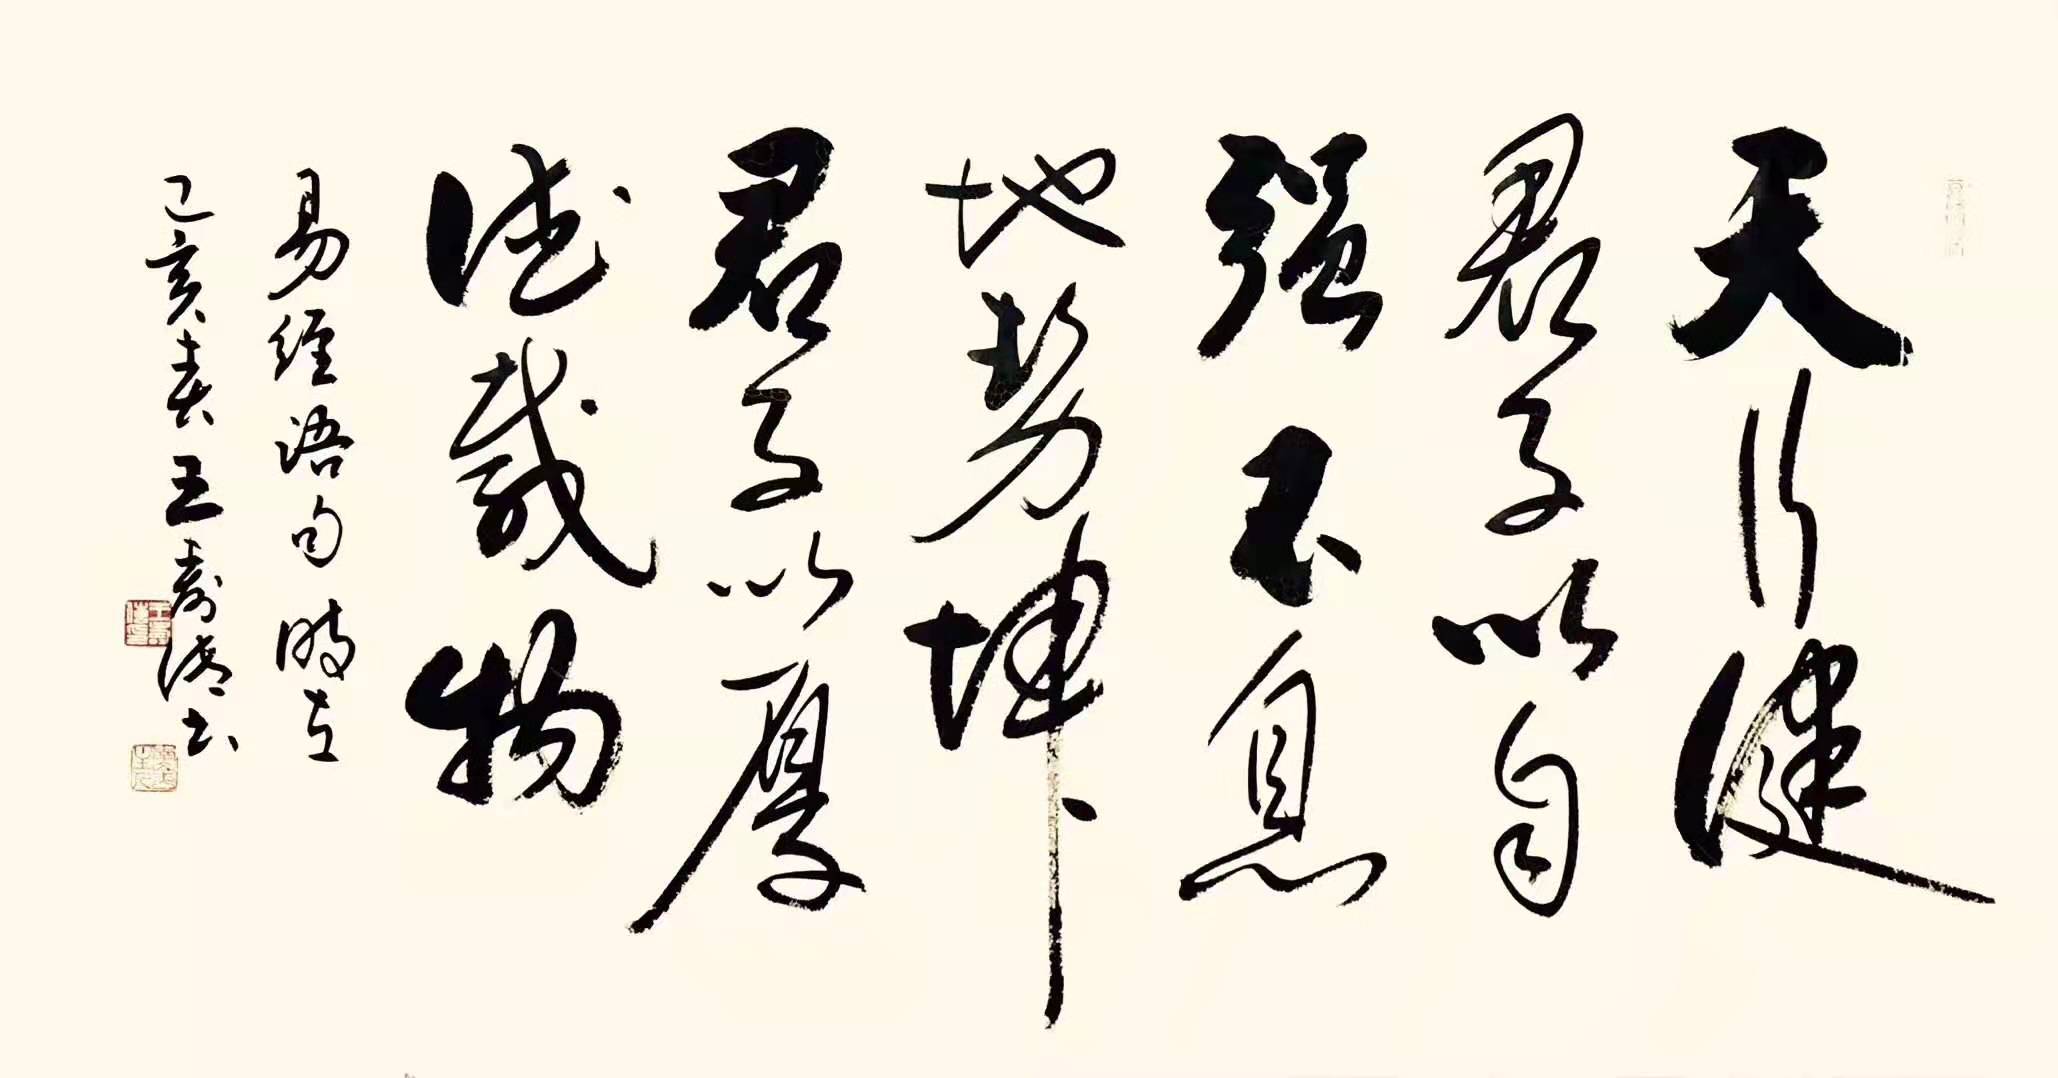 天行健
君子以自
强不息
地势坤
君子以厚
德载物
易经语句 时在
己亥春 王寿书